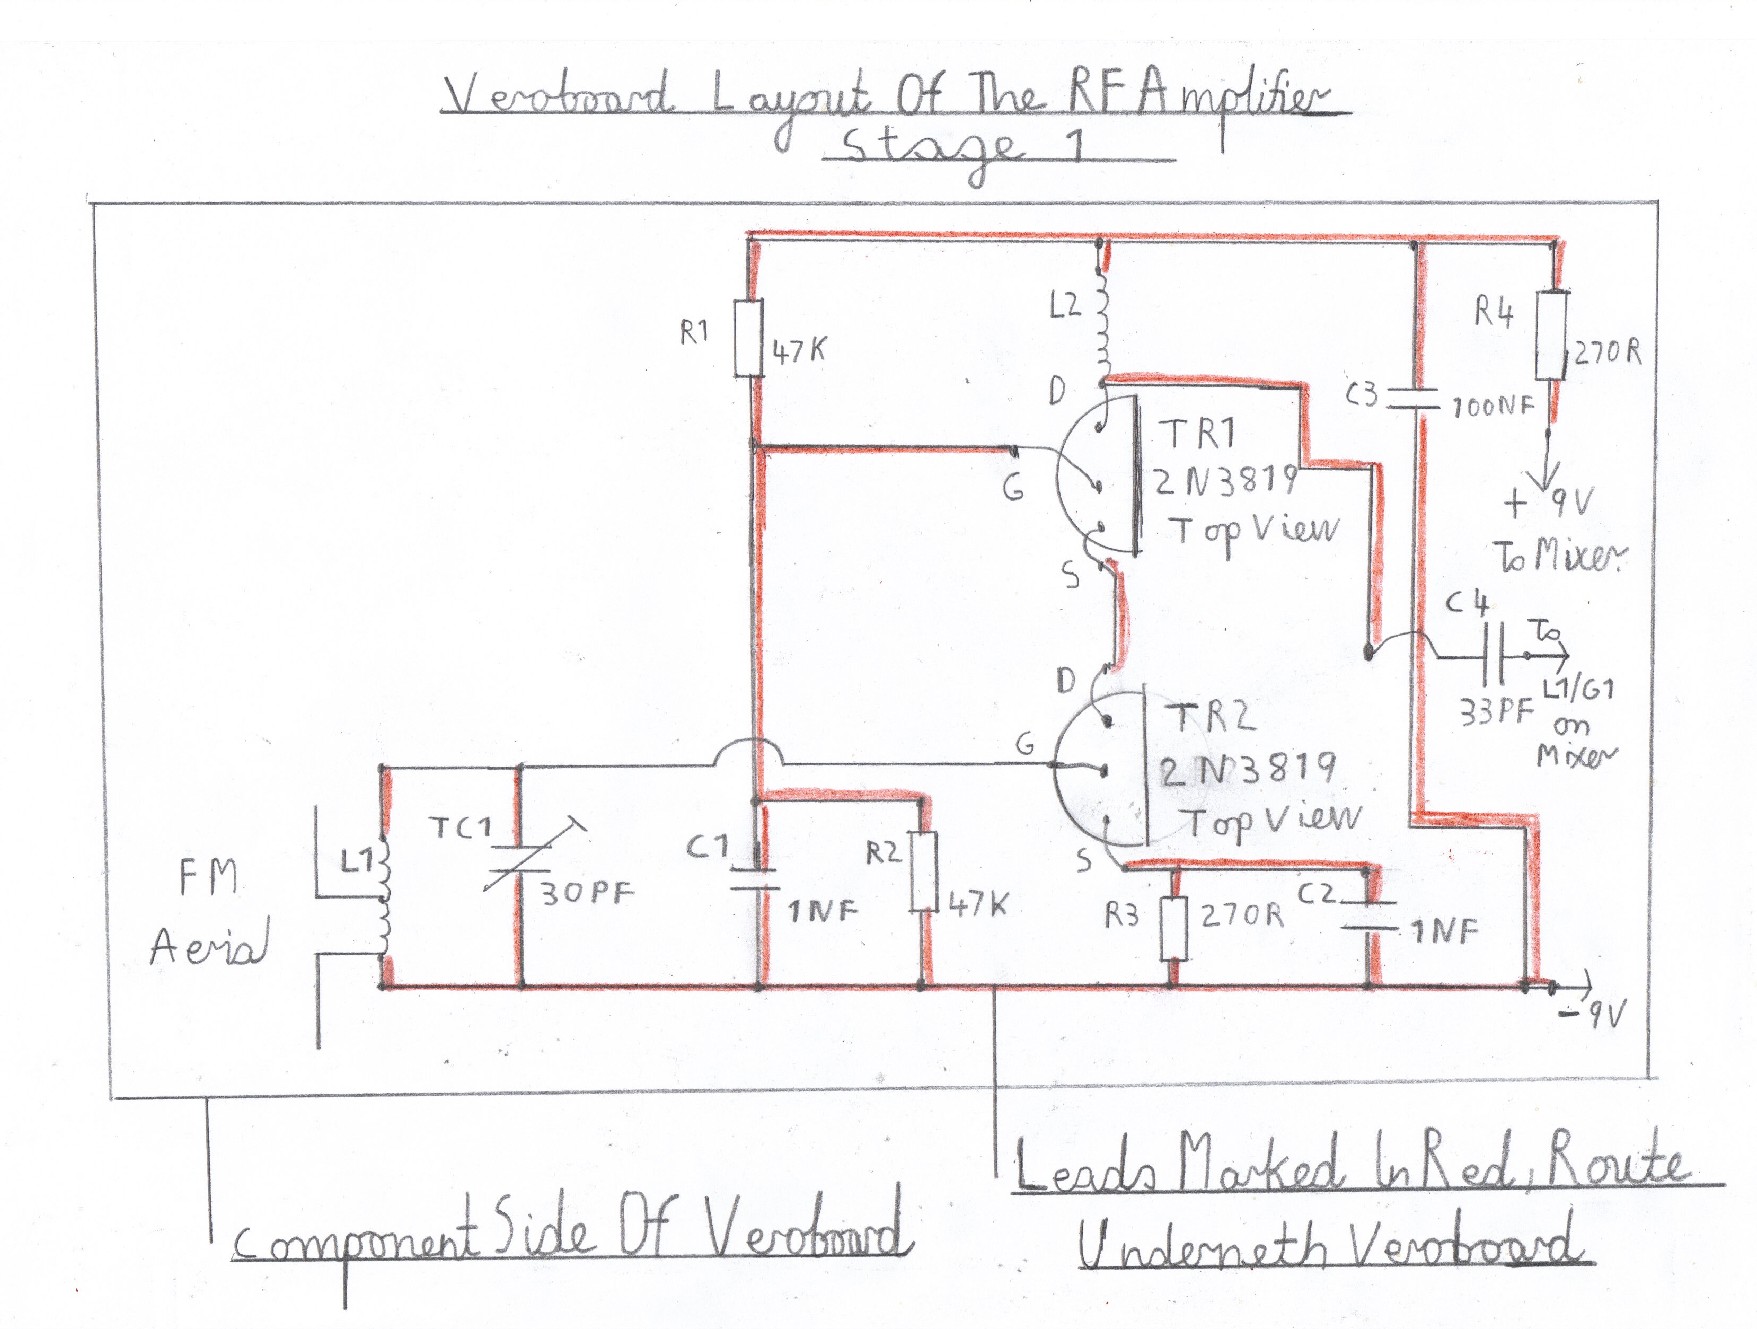 Veroboard Layout Of The RF Amplifier
Stage 1
L2
R1
47K
R4
270R
D
C3
100NF
TR1
2N3819
Top View
G
S
+ 9V
To Mixer
C4
To
L1/G1
on
Mixer
33PF
D
TR2
2N3819
Top View
G
S
TC1
30PF
L1
FM
Aerial
C1
1NF
R2
47K
R3
270R
C2
1NF
-9V
Leads Marked In Red, Route
Underneth Veroboard
Component Side Of Veroboard